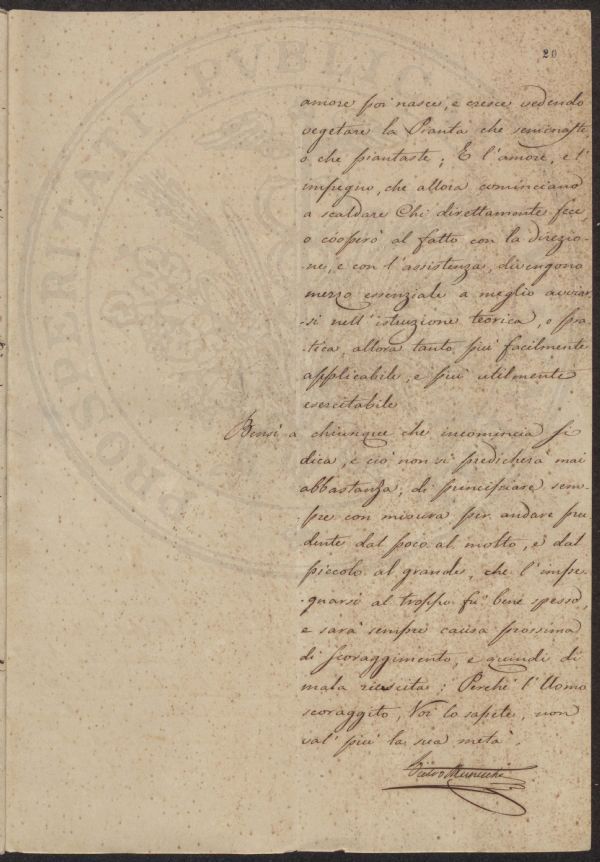 20
amore poi nasce, e cresce vedendo
vegetare la Pianta che seminaste,
o che piantaste; E l'amore, e l'
impegno, che allora cominciano
a scaldare Chi direttamente fece,
o cooperò al fatto con la direzio-
-ne, e con l'assistenza, divengono
mezzo essenziale a meglio avviar
-si nell'istruzione teorica, o pra-
-tica, allora tanto più facilmente
applicabile, e più utilmente
esercitabile
Bensì a chiunque che incomincia si
dica, e ciò non si predicherà mai
abbastanza, di principiare sem-
pre con misura per andare pru
dente dal poco al molto, e dal
piccolo al grande, che l'impe-
-gnarsi al troppo fù bene spesso,
e sarà sempre causa prossima
di scoraggimento, e quindi di
mala riescita: Perchè l'Uomo
scoraggito, Voi lo sapete, non
val' più la sua metà.
PROSPERITATI PVBLICAE